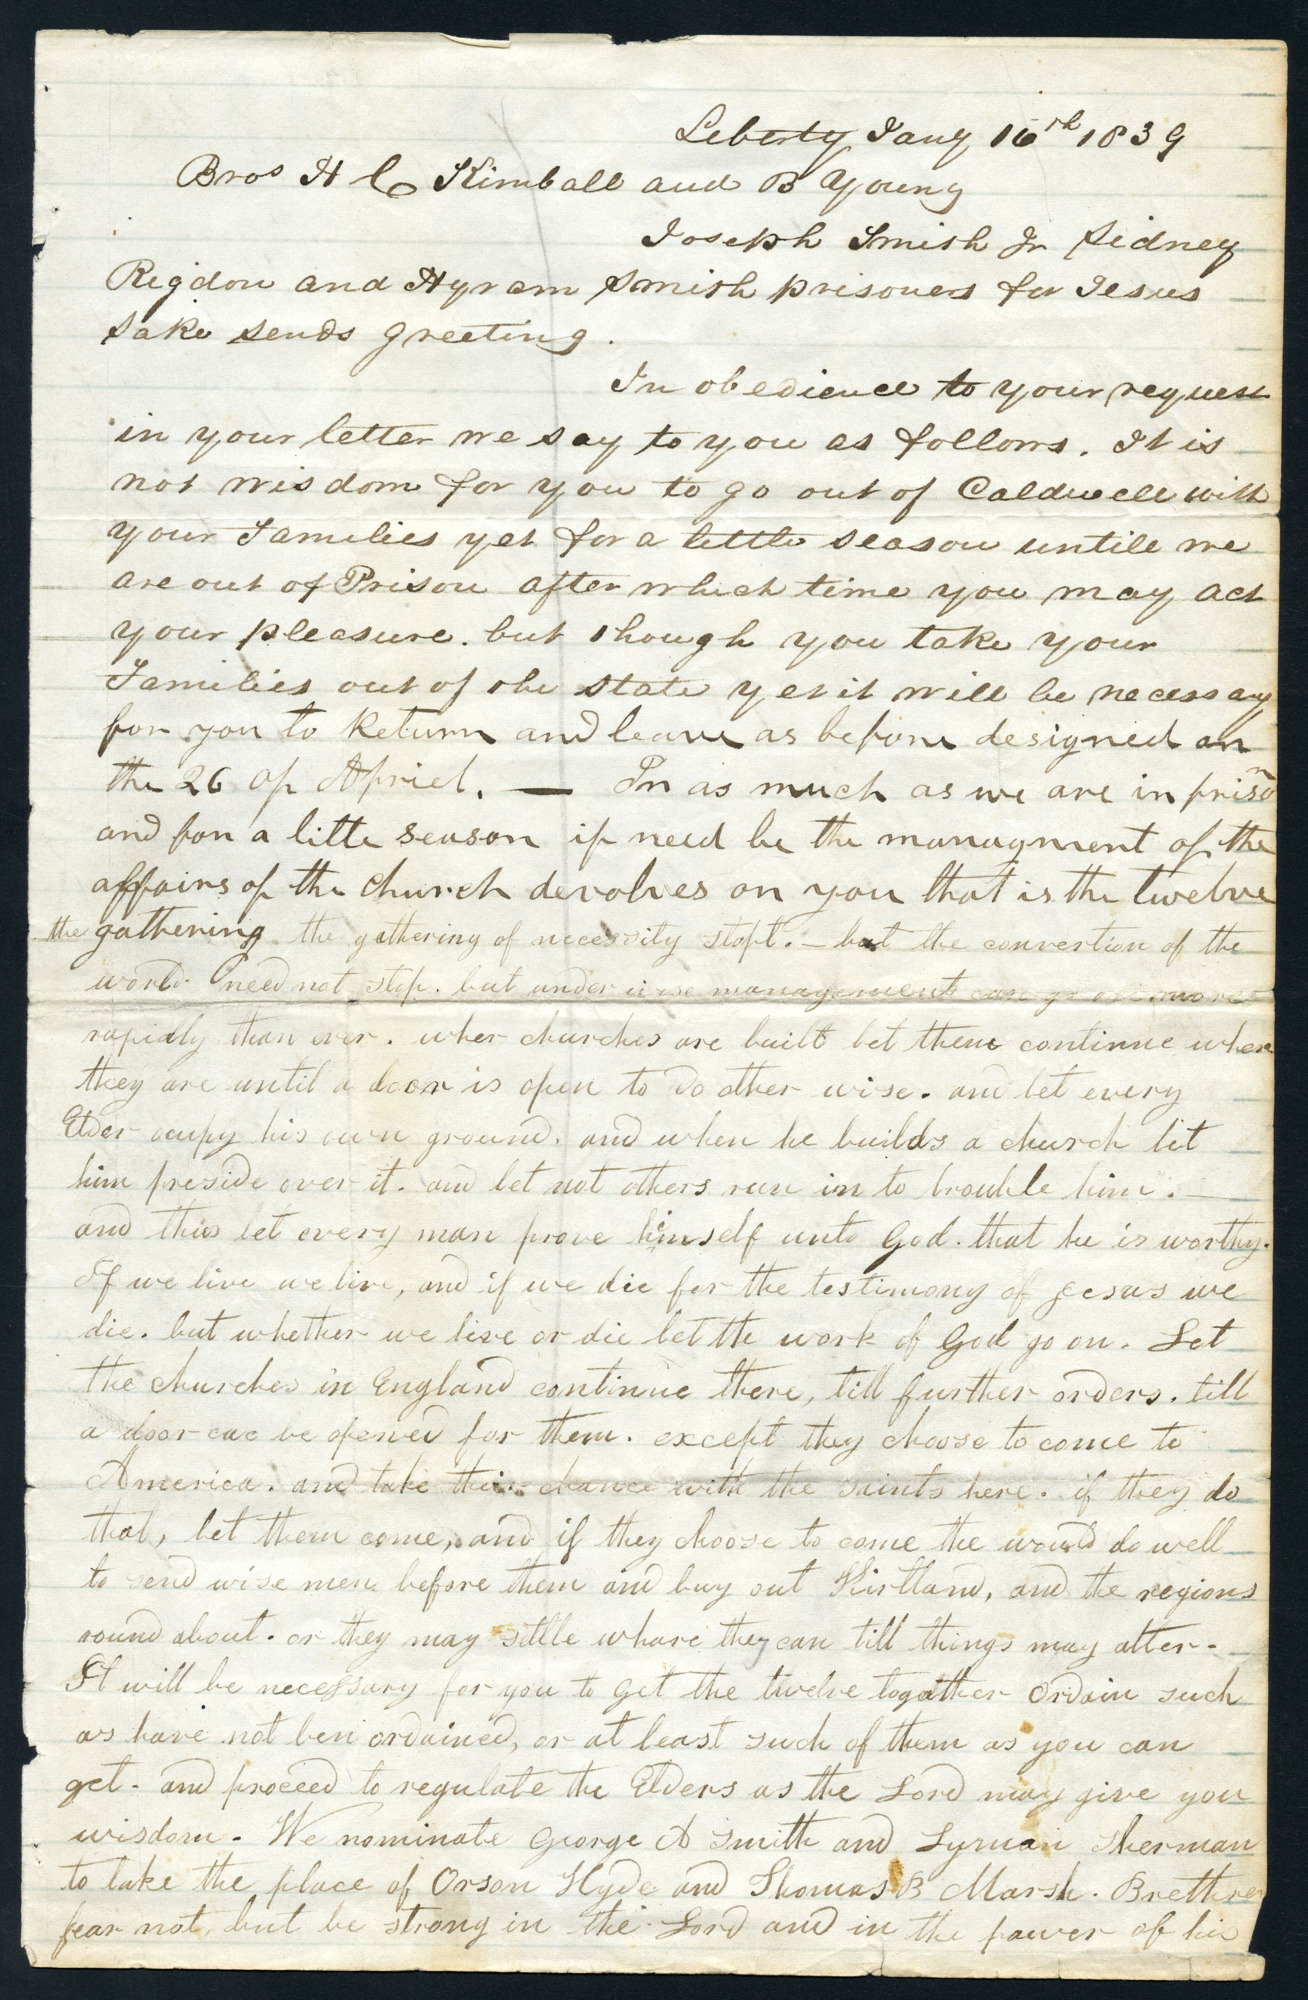 Liberty Jany 16th 1839
Bros H C Kimball and B Young
Joseph Smith Jr Sidney
Rigdon and Hyram Smith prisoners for Jesus
sake sends greeting.
In obedience to your request
in your letter we say to you as follows. It is
not wisdom for you to go out of Caldwell with
your Families yet for a little season untill we
are out of Prison after which time you may act
your pleasure. but though you take your
Families out of the state yet it will be necessary
for you to Return and leave as before designed on
the 26 of Apriel. — In as much as we are in prison
and for a litte season if need be the managment of the
affairs of the church devolves on you that is the twelve
the gathering the gathering of necessity stopt. — but the convertion of the
world need not stop. but under wise management can go on more
rapidly than ever. wher churches are built let them continue where
they are until a door is open to do other wise. and let every
Elder ocupy his own ground. and when he builds a church let
him preside over it. and let not others run in to trouble him. —
and thus let every man prove himself unto God. that he is worthy.
If we live we live, and if we die for the testimony of Jesus we
die. but whether we live or die let the work of God go on. Let
the churches in England continue there, till further orders. till
a door can be opened for them. except they choose to come to
America. and take their chance with the saints here. if they do
that, let them come, and if they choose to come the would do well
to send wise men before them and buy out Kirtland, and the regions
round about. or they may settle whare they can till things may alter.
It will be necessary for you to get the twelve togather Ordain such
as have not ben ordained, or at least such of them as you can
get. and proceed to regulate the Elders as the Lord may give you
wisdom. We nominate George A Smith and Lyman Sherman
to take the place of Orson Hyde and Thomas B Marsh. Brethren
fear not, but be strong in the Lord and in the power of his